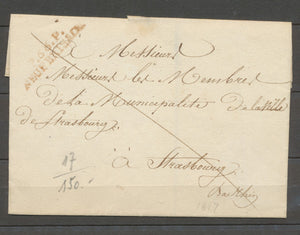 P.P.
à Messieurs
Messieurs les Membres
de la Municipalité de la Ville
de Strasbourg.
à Strasbourg
Bas Rhin
17
150.
1817